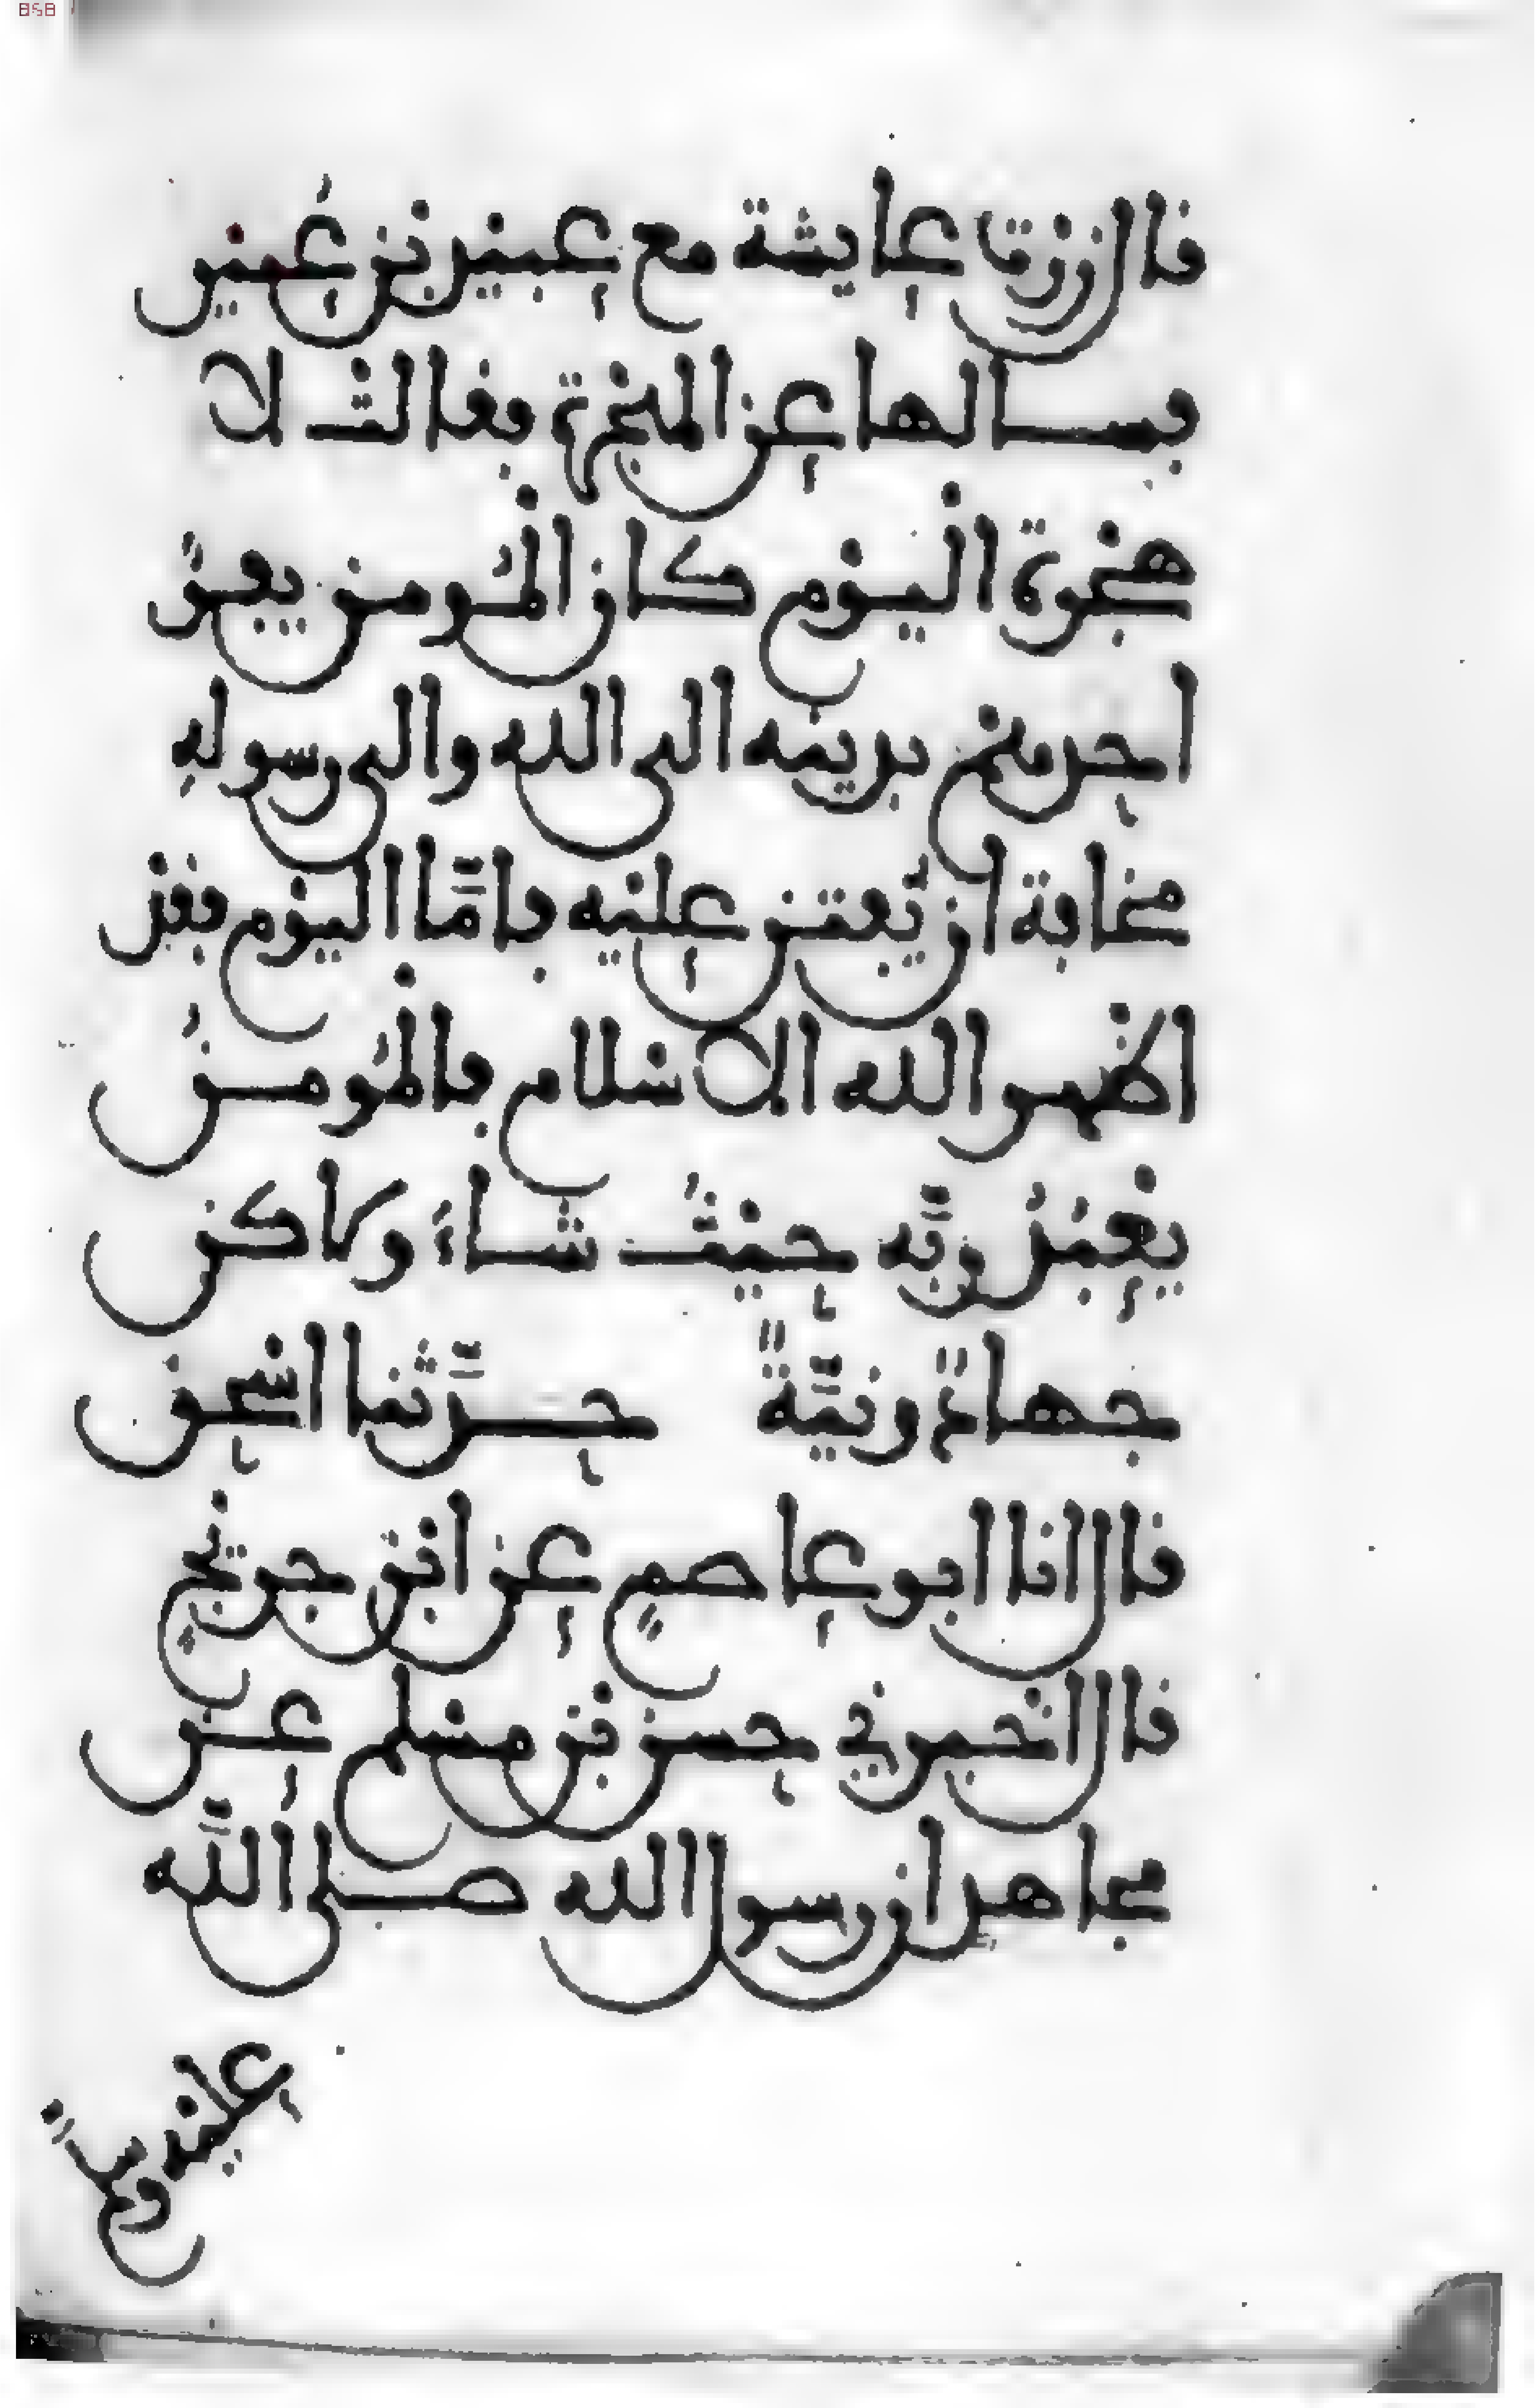 قال زرت عايشة مع عبيد بن عُمير
فسالها عن الهجرة فقالت لا
هجرة اليوم كان المومن يفرّ
احدهم بدينه الى الله والى رسوله
مخافة ان يُفتن عليه فامّا اليوم فقد
اظهر الله الاسلام فالمُومنُ
يعبُدُ ربَّه حيثُ شاءَ ولاكن
جهادٌ ونيَّةٌ حدَّثنا اسحق
قال انا ابو عاصمٍ عن ابن جريجٍ
قال اخبرني حسن بن مسلم عن
مجاهدٍ ان رسول الله صلى اللَّه
عليه وسلّم